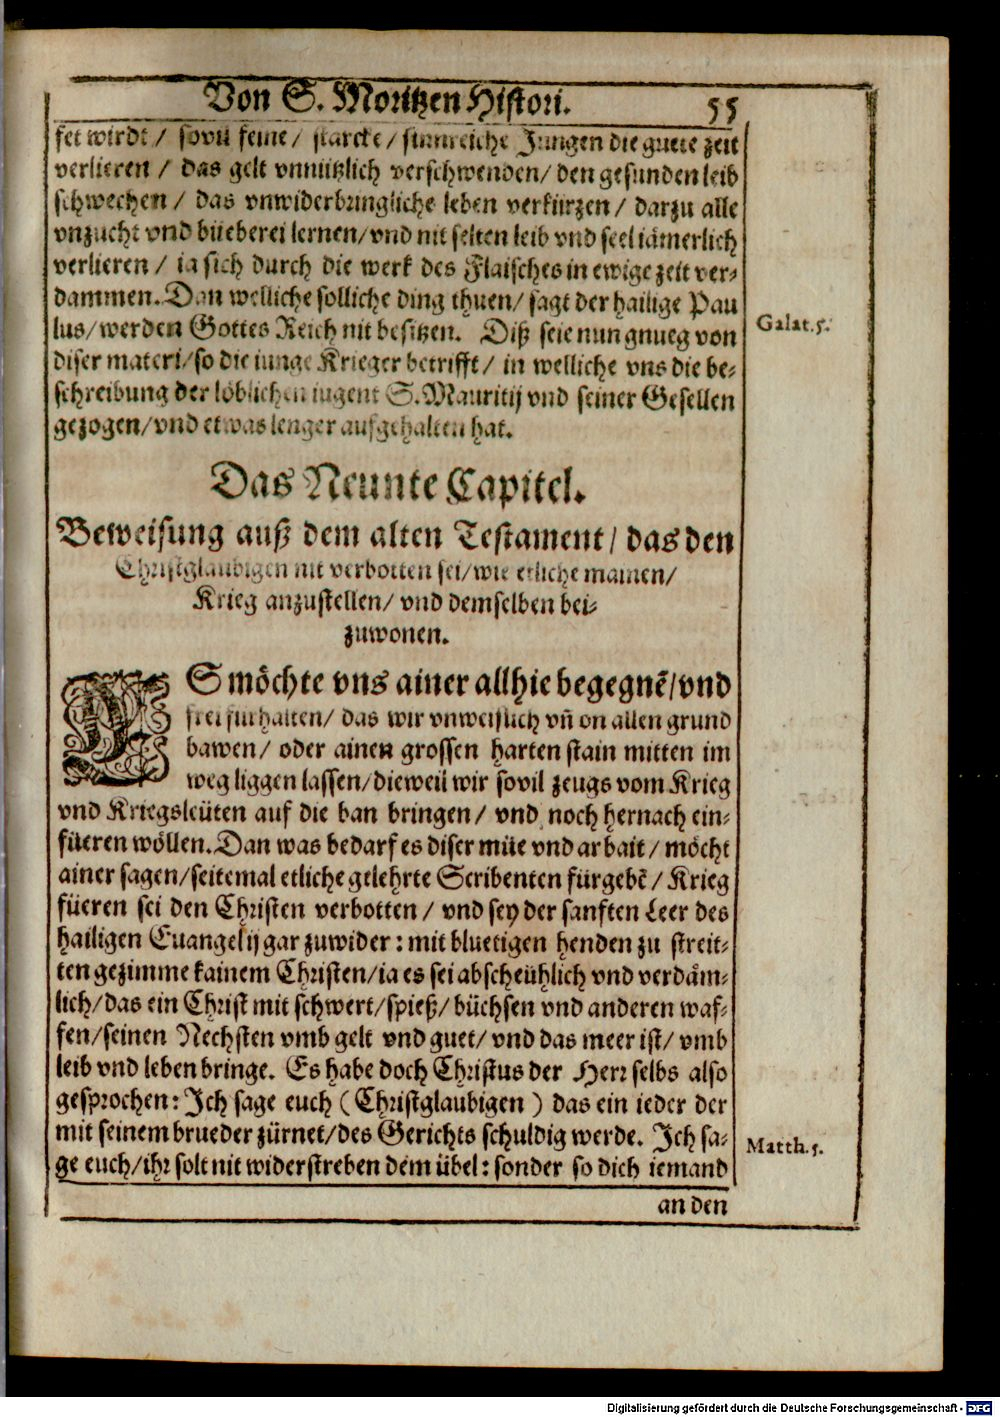 Von S. Moritzen Histori. 55
set wirdt / sovil feine / starcke / sinnreiche Jungen die guete zeit
verlieren / das gelt vnnützlich verschwenden / den gesunden leib
schwechen / das vnwiderbringliche leben verkürzen / darzu alle
vnzucht vnd büeberei lernen / vnd nit selten leib vnd seel iämerlich
verlieren / ia sich durch die werk des Flaisches in ewige zeit ver-
dammen. Dan welliche solliche ding thuen / sagt der hailige Pau
lus / werden Gottes Reich nit besitzen. Diß seie nun gnueg von
Galat. 5.
diser materi / so die iunge Krieger betrifft / in welliche vns die be-
schreibung der löblichen iugent S. Mauritij vnd seiner Gesellen
gezogen / vnd etwas lenger aufgehalten hat.
Das Neunte Capitel.
Beweisung auß dem alten Testament / das den
Christglaubigen nit verbotten sei / wie etliche mainen /
Krieg anzustellen / vnd demselben bei-
zuwonen.
ES möchte vns ainer allhie begegnē / vnd
frei fürhalten / das wir vnweißlich vn̄ on allen grund
bawen / oder ainen grossen harten stain mitten im
weg liggen lassen / dieweil wir sovil zeugs vom Krieg
vnd Kriegsleüten auf die ban bringen / vnd noch hernach ein-
füeren wöllen. Dan was bedarf es diser müe vnd arbait / möcht
ainer sagen / seitemal etliche gelehrte Scribenten fürgebē / Krieg
füeren sei den Christen verbotten / vnd sey der sanften Leer des
hailigen Euangelij gar zuwider : mit bluetigen henden zu streit-
ten gezimme kainem Christen / ia es sei abscheühlich vnd verdäm-
lich / das ein Christ mit schwert / spieß / büchsen vnd anderen waf-
fen / seinen Nechsten vmb gelt vnd guet / vnd das meer ist / vmb
leib vnd leben bringe. Es habe doch Christus der Herr selbs also
gesprochen : Ich sage euch ( Christglaubigen ) das ein ieder der
mit seinem brueder zürnet / des Gerichts schuldig werde. Ich sa-
Matth. 5.
ge euch / ihr solt nit widerstreben dem übel : sonder so dich iemand
an den
Digitalisierung gefördert durch die Deutsche Forschungsgemeinschaft - DFG